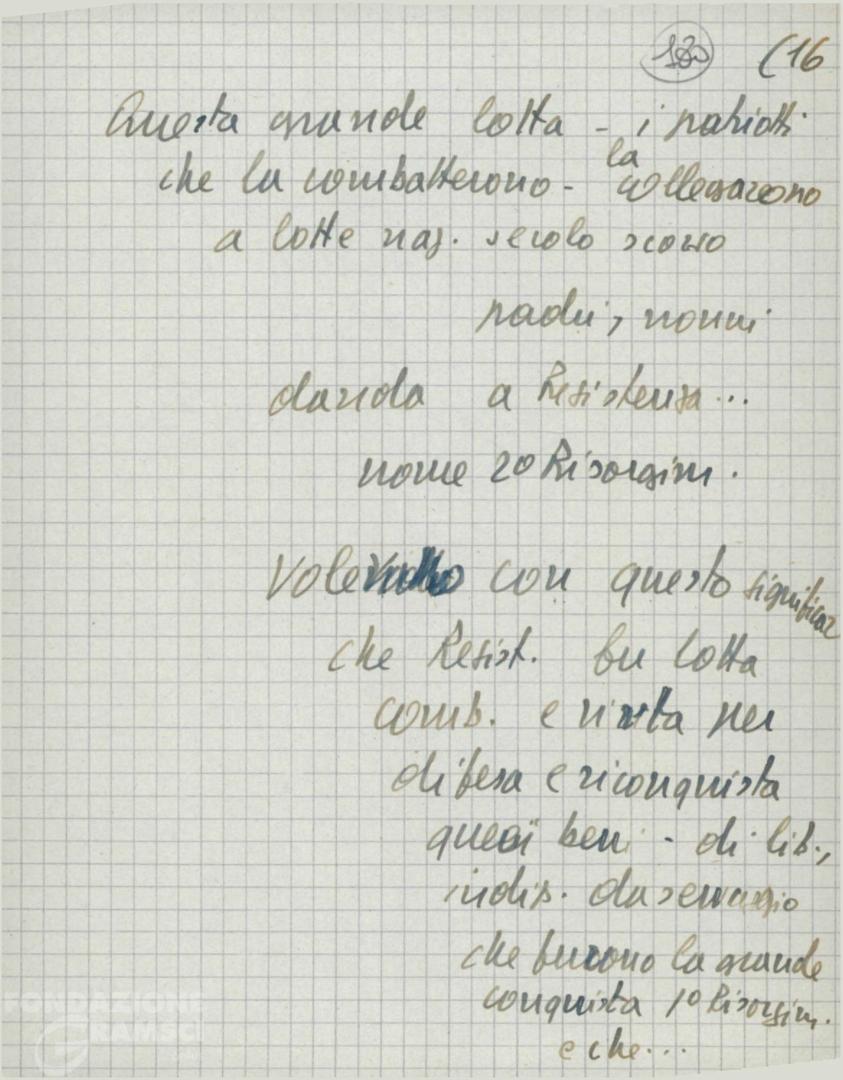 180 (16
Questa grande lotta - i patriotti
la
che la combatterono - collegarono
a lotte naz. secolo scorso
padri, nonni
dando a Resistenza...
nome 2º Risorgim.
Volevano con questo significar
che Resist. fu lotta
comb. e vinta per
difesa e riconquista
quei beni - di lib.,
indip. da servaggio
che furono la grande
conquista 1º Risorgim.
e che...
FONDAZIONE
GRAMSCI